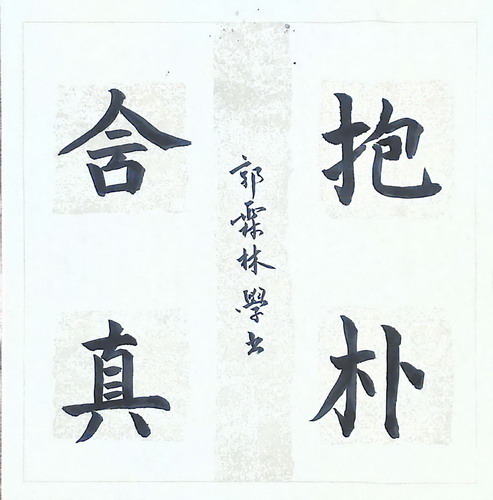 抱朴
含真
郭霖林學书